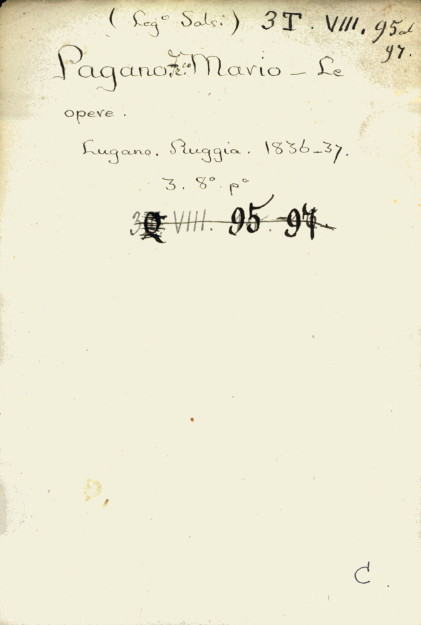 (Leg.º Salsi.) 3 T. VIII. 95 al
97.
Pagano Fr.co Mario – Le
opere.
Lugano. Ruggia. 1836–37.
3. 8º pº
3 Q VIII. 95–97
C.